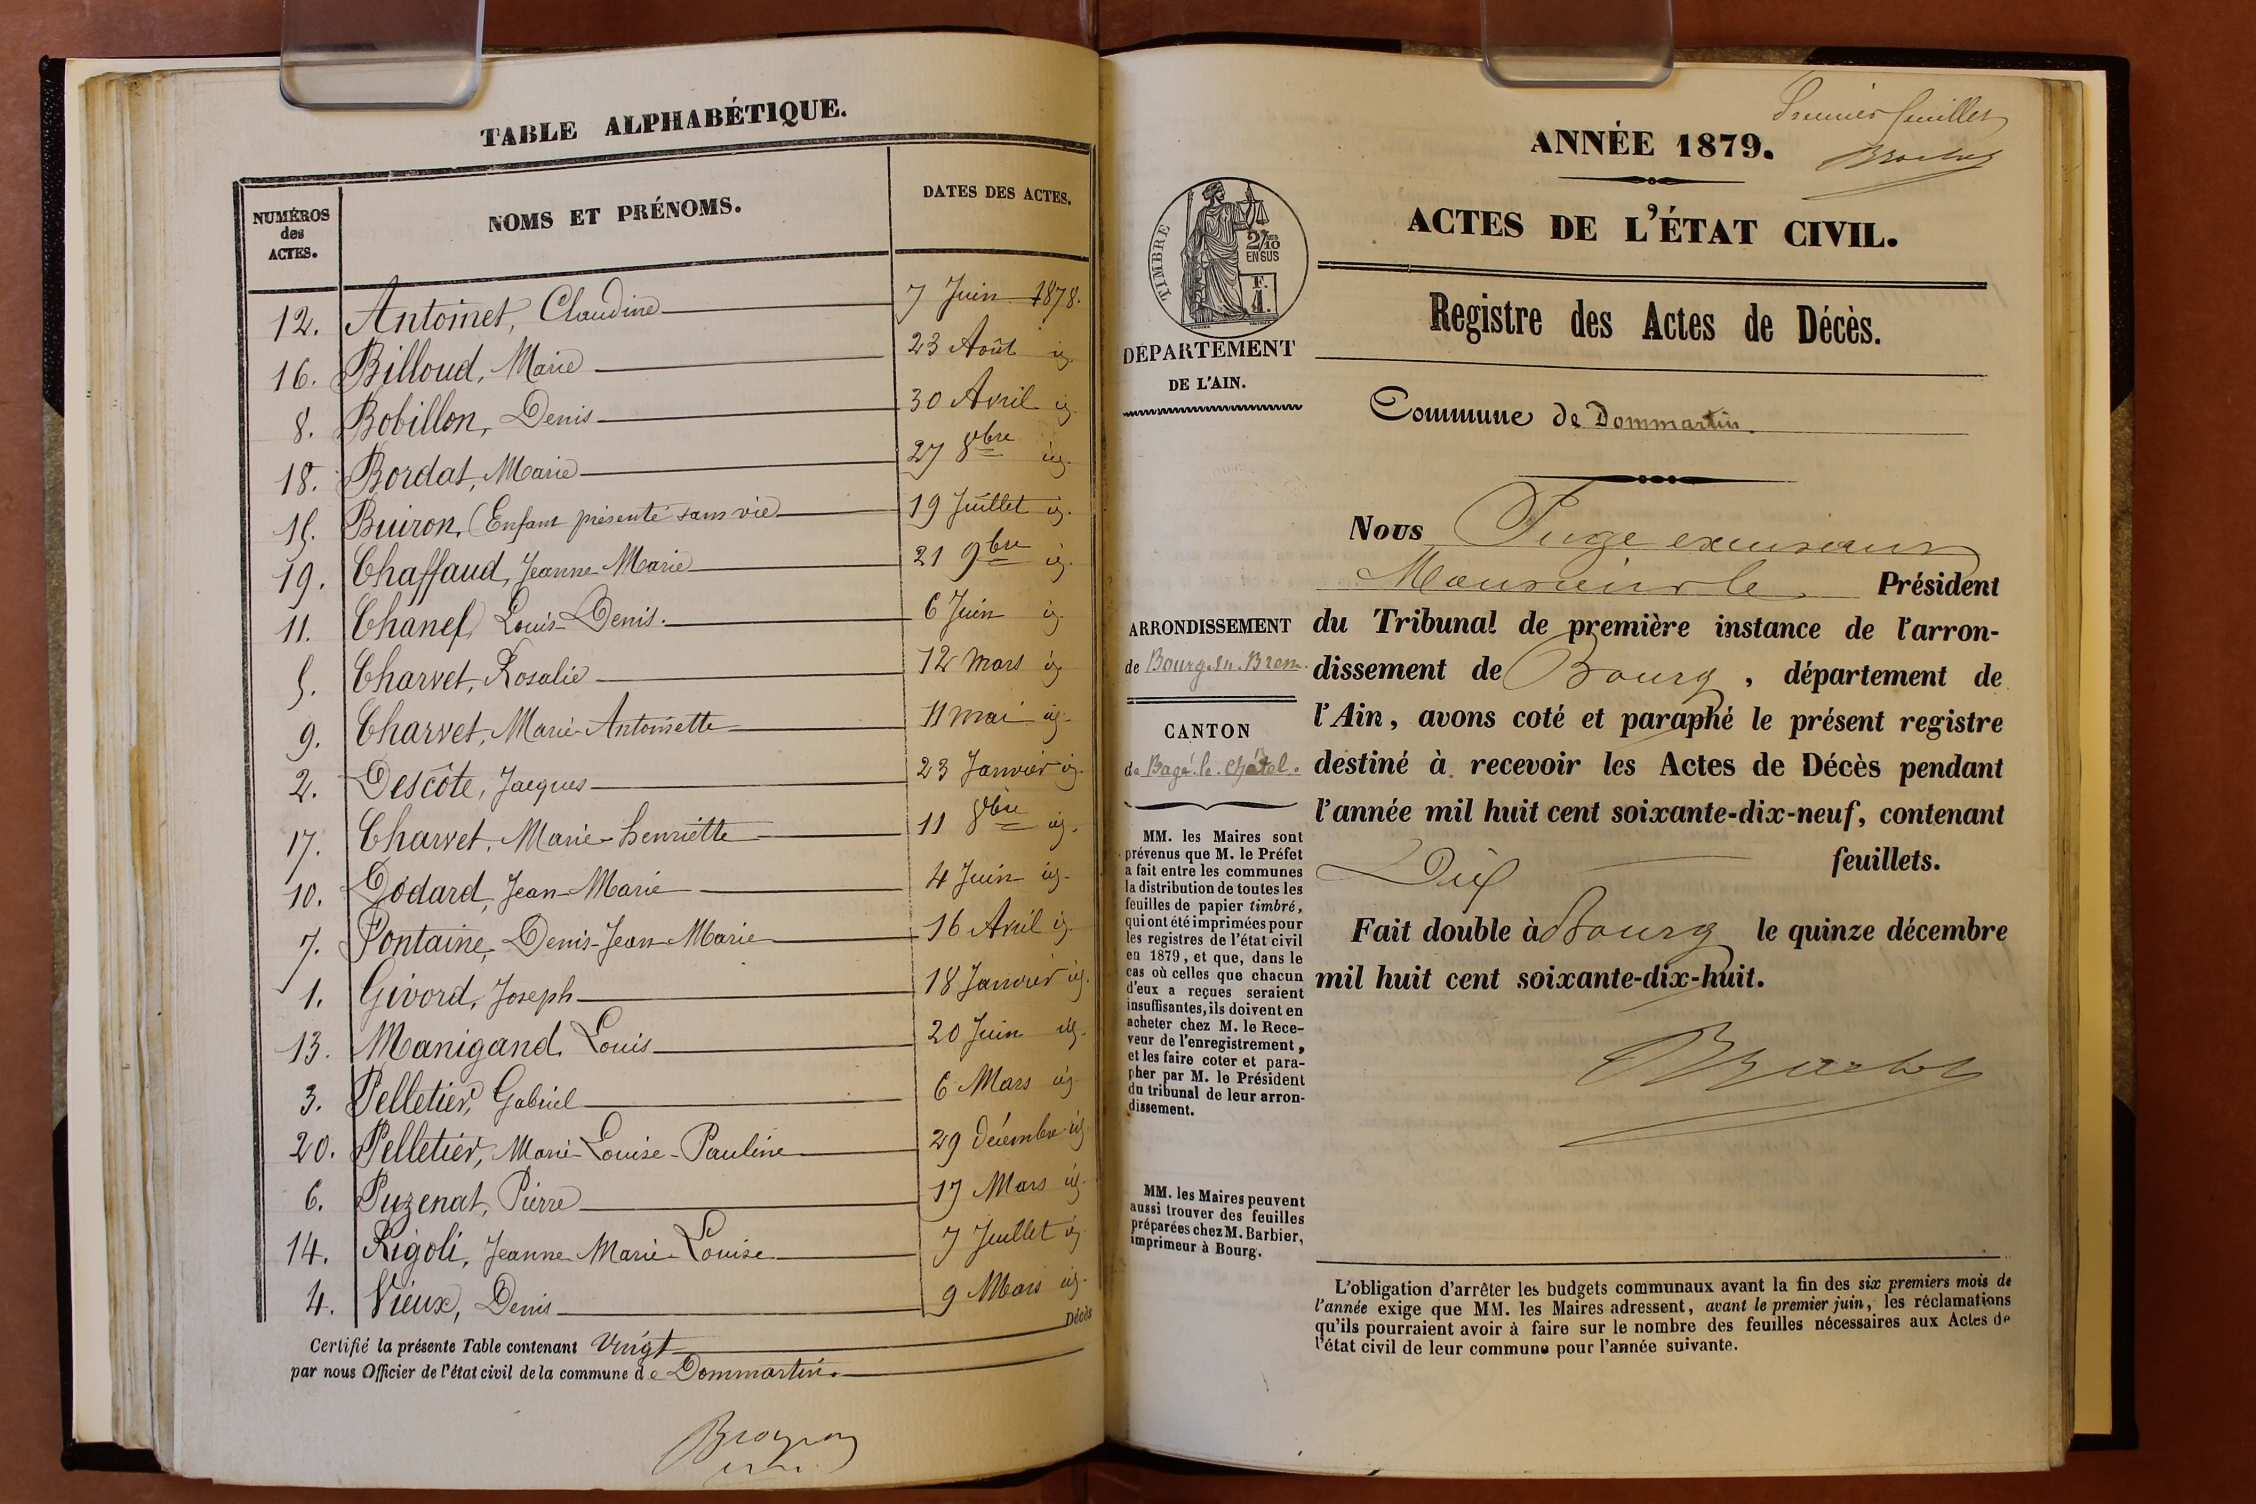 TABLE ALPHABÉTIQUE.
NUMÉROS des ACTES.
NOMS ET PRÉNOMS.
DATES DES ACTES.
12. Antoinet, Claudine 7 Juin 1878.
16. Billoud, Marie 23 Août id.
8. Bobillon, Denis 30 Avril id.
18. Bordat, Marie 27 8bre id.
15. Buiron, (Enfant présenté sans vie 19 Juillet id.
19. Chaffaud, Jeanne Marie 21 9bre id.
11. Chanel, Louis-Denis. 6 Juin id.
5. Charvet, Rosalie 12 Mars id.
9. Charvet, Marie-Antoinette 11 Mai id.
2. Descôte, Jacques 23 Janvier id.
17. Charvet, Marie-henriette 11 8bre id.
10. Dodard, Jean-Marie 4 Juin id.
7. Fontaine, Denis-Jean-Marie 16 Avril id.
1. Givord, Joseph 18 Janvier id.
13. Manigand, Louis 20 Juin id.
3. Pelletier, Gabriel 6 Mars id.
20. Pelletier, Marie-Louise-Pauline 29 décembre id.
6. Puzenat, Pierre 17 Mars id.
14. Rigoli, Jeanne Marie-Louise 7 Juillet id.
4. Vieux, Denis 9 Mars id.
Décès
Certifié la présente Table contenant Vingt
par nous Officier de l'état civil de la commune de Dommartin.
Premier feuillet
ANNÉE 1879.
ACTES DE L'ÉTAT CIVIL.
TIMBRE
2/10
EN SUS
F.
1.
Registre des Actes de Décès.
DÉPARTEMENT
DE L'AIN.
Commune de Dommartin.
ARRONDISSEMENT
de Bourg-en-Bresse.
CANTON
de Bagé-le-Châtel.
MM. les Maires sont
prévenus que M. le Préfet
a fait entre les communes
la distribution de toutes les
feuilles de papier timbré,
qui ont été imprimées pour
les registres de l'état civil
en 1879, et que, dans le
cas où celles que chacun
d'eux a reçues seraient
insuffisantes, ils doivent en
acheter chez M. le Rece-
veur de l'enregistrement,
et les faire coter et para-
pher par M. le Président
du tribunal de leur arron-
dissement.
MM. les Maires peuvent
aussi trouver des feuilles
préparées chez M. Barbier,
imprimeur à Bourg.
Nous Juge
Monsieur le Président
du Tribunal de première instance de l'arron-
dissement de Bourg, département de
l'Ain, avons coté et paraphé le présent registre
destiné à recevoir les Actes de Décès pendant
l'année mil huit cent soixante-dix-neuf, contenant
Dix feuillets.
Fait double à Bourg le quinze décembre
mil huit cent soixante-dix-huit.
L'obligation d'arrêter les budgets communaux avant la fin des six premiers mois de
l'année exige que MM. les Maires adressent, avant le premier juin, les réclamations
qu'ils pourraient avoir à faire sur le nombre des feuilles nécessaires aux Actes de
l'état civil de leur commune pour l'année suivante.